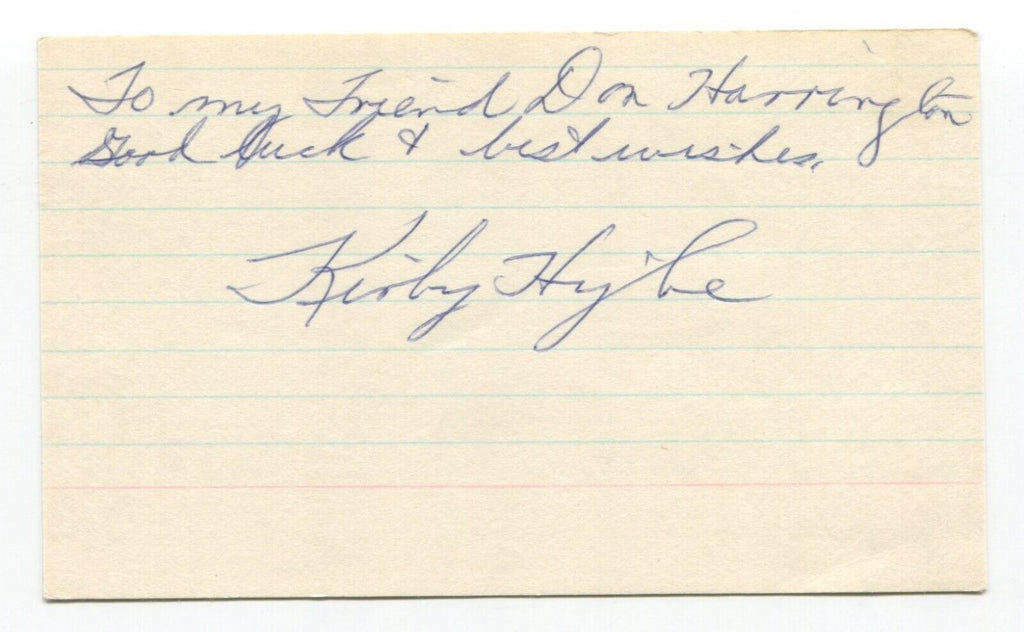 To my Friend Don Harrington
Good luck & best wishes.
Kirby Higbe